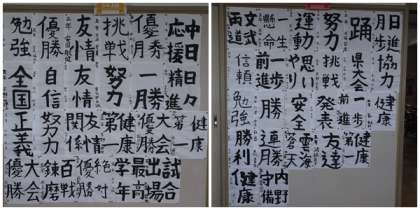 中日
応援
優秀
挑戦
友情
優勝
勉強
日々精進
一勝
努力
友情
自信
全国
健康第一
大会優勝
健康第一
関係
努力
正義
試合出場
学年最高
絶対優勝
百戦錬磨
大会優勝
踊
努力
運動
一生懸命
文武両道
協力
県大会
挑戦
思いやり
前進
信頼
健康
一歩前進
発表
安全
勉強
健康第一
友達
連勝
勝利
健康